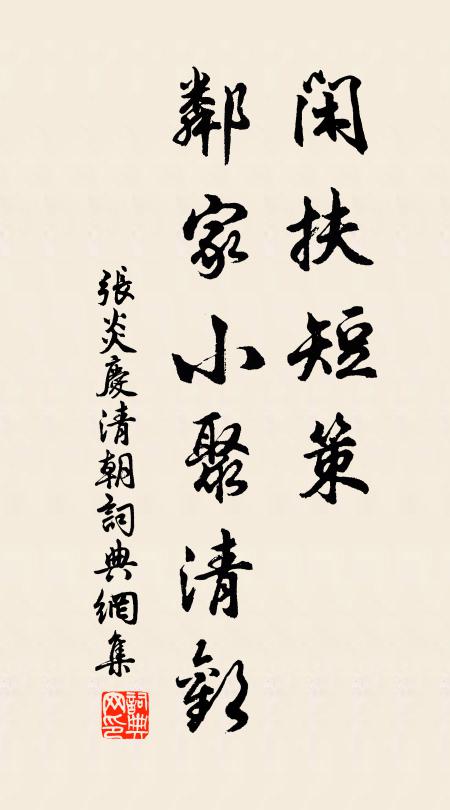 閑扶短策
鄰家小聚清歡
張炎慶清朝詞典網集
詞典网印